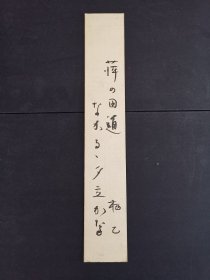 萍の田道
なかるゝ夕立かな